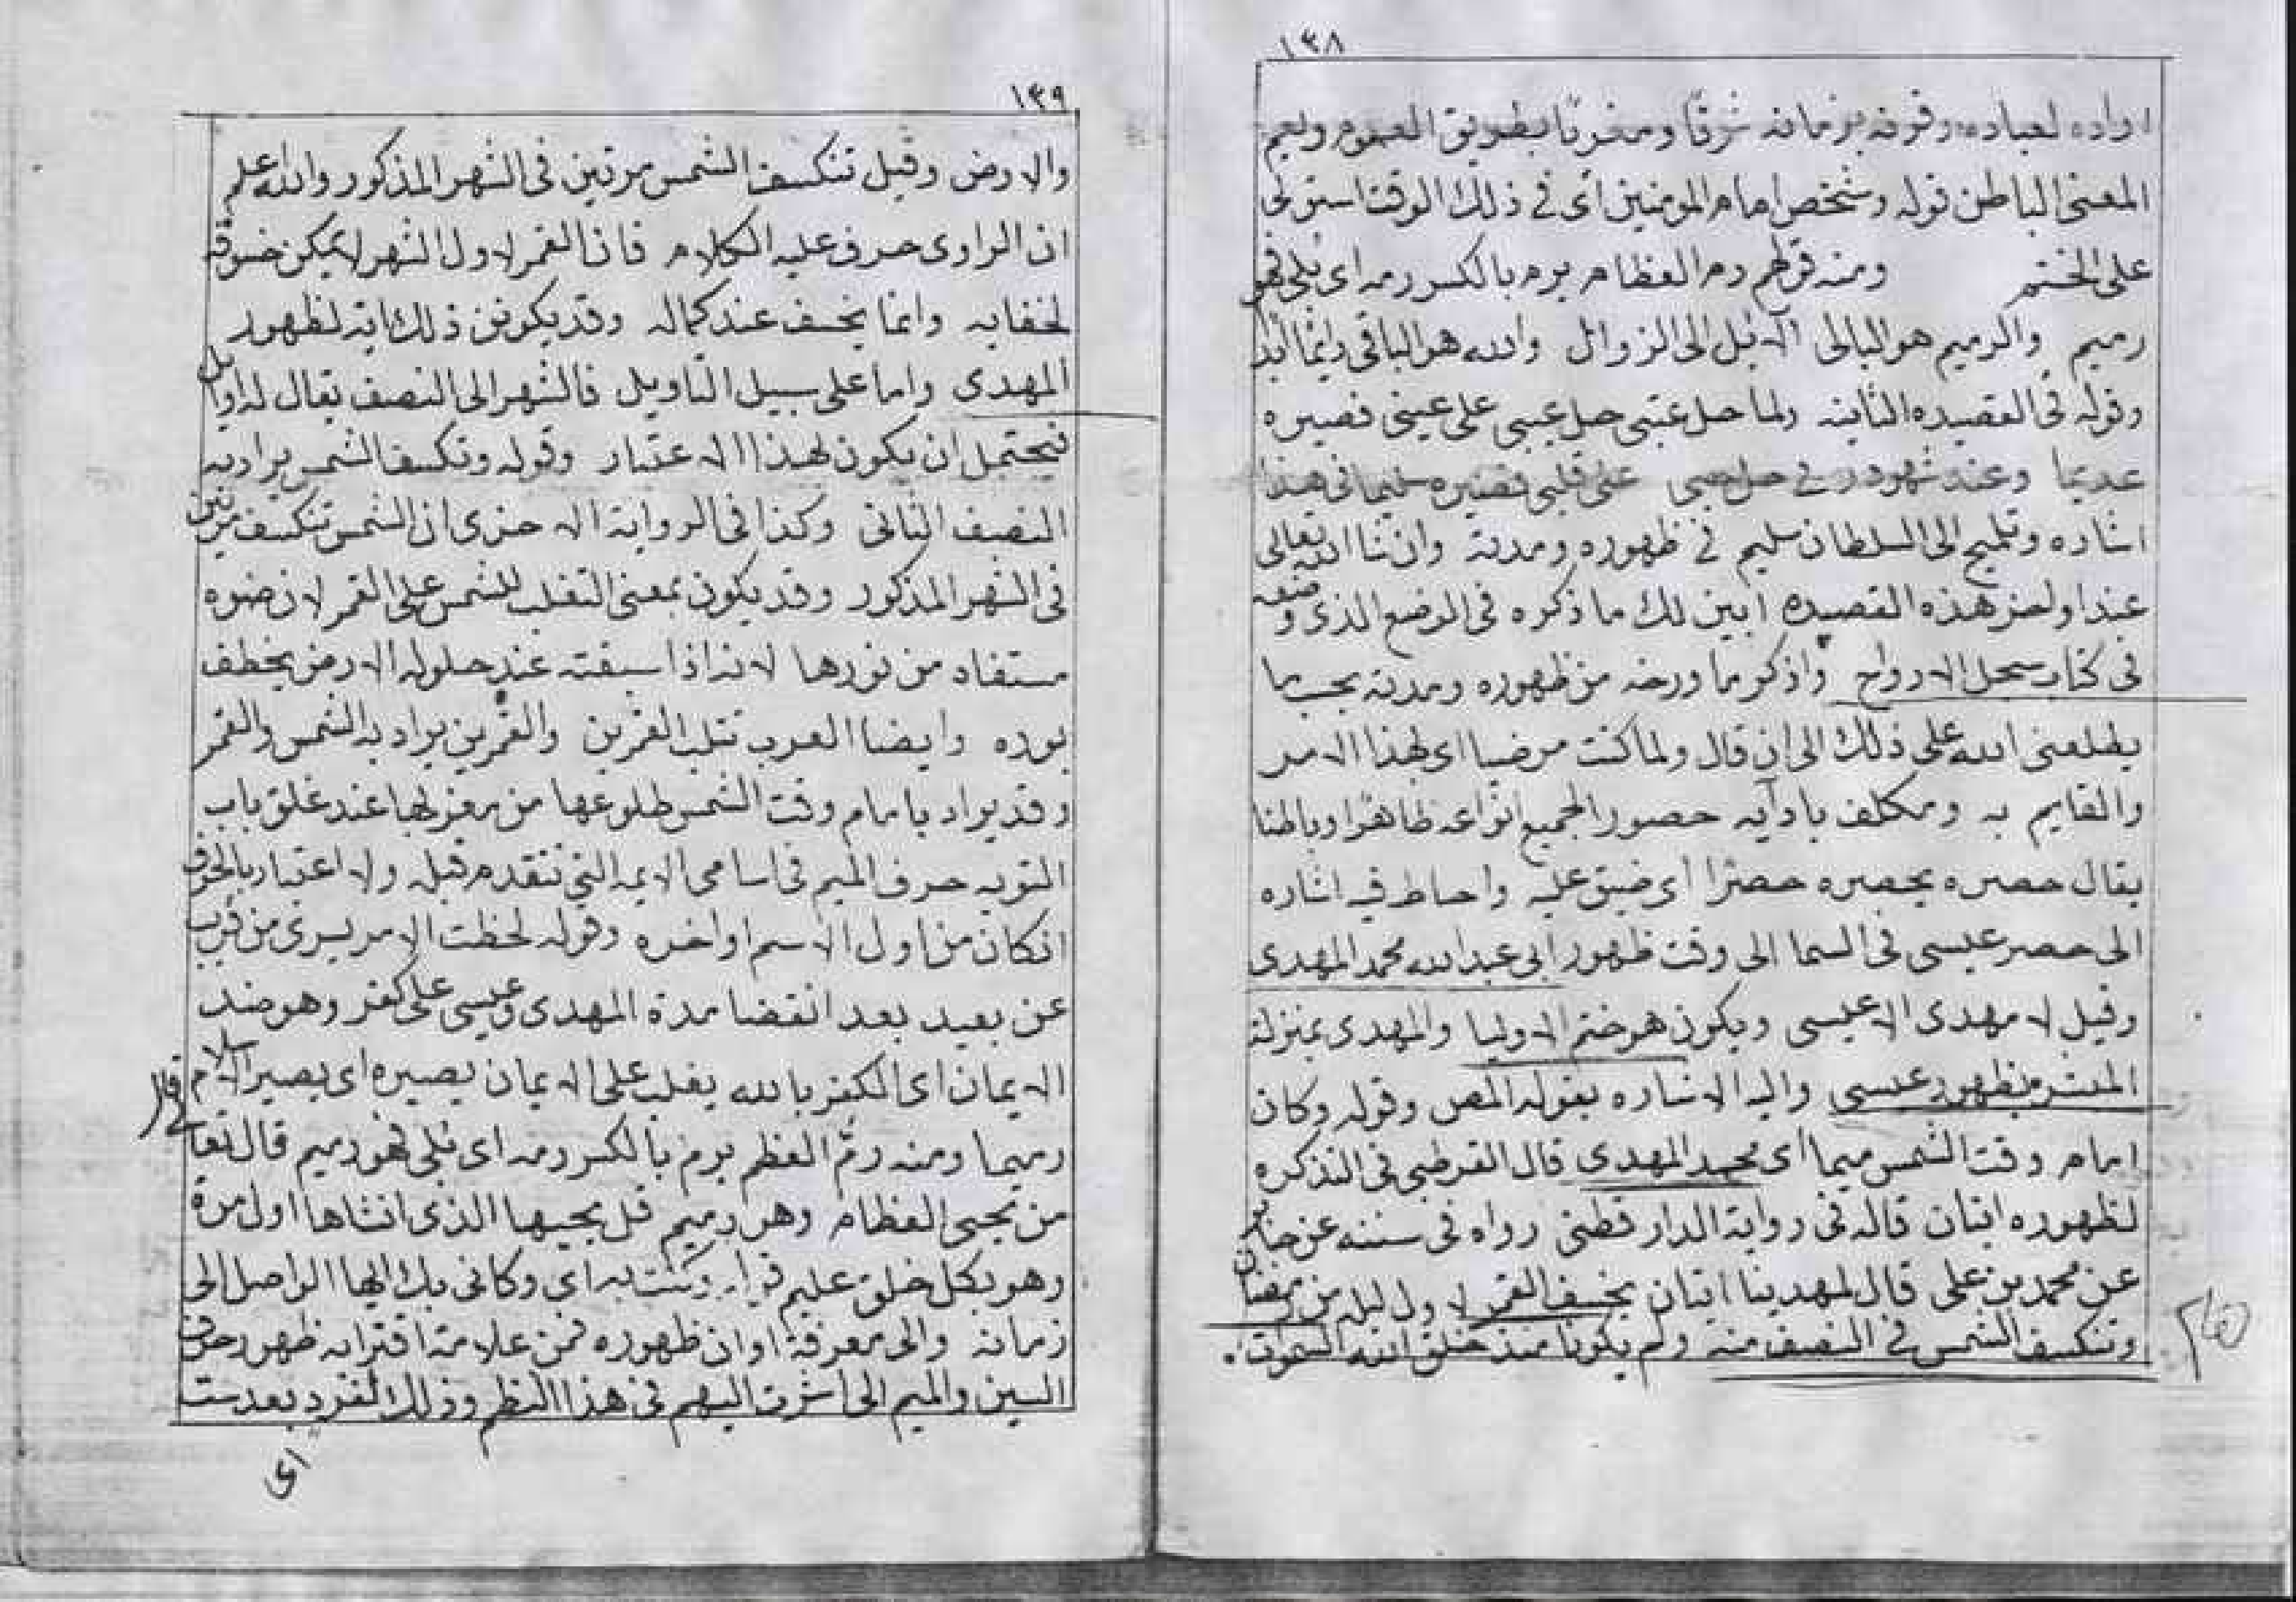 ١٣٨
اراده لعباده وقرنه بزمانه شرقا ومغربا بطريق العموم ويعم
المعنى الباطن قوله وشخص امام المومنين أى في ذلك الوقت استولى
على الختم ومنه قولهم رم العظام يرم بالكسر رمه اى بلى فهو
رميم والرميم هو البالى الآيل الى الزوال والله هو الباقى
وقوله فى القصيده الثانيه ولما حل عتبى حل عيسى على عينى فصيره
عديما وعند شهود على قلبى فصيره سليما فى هذا
اشاره وتلميح الى السلطان سليم في ظهوره ومدته وان شا الله تعالى
عند اواخر هذه القصيده ابين لك ما ذكره فى الوضع الذى وضعه
فى كتاب سجل الارواح واذكر ما ورخه من ظهوره ومدته بحسب ما
يطلعنى الله على ذلك الى ان قال ولما كنت مرضيا اى لهذا الامر
والقايم به ومكلف بادآيه حصورا لجميع انواعه ظاهرا وباطنا
يقال حصره يحصره حصرا أى ضيق عليه واحاط فيه اشاره
الى حصر عيسى فى السما الى وقت ظهور ابى عبدالله محمد المهدى
وقيل لا مهدى الا عيسى ويكون هو ختم الاوليا والمهدى بمنزلة
المبشر بظهور عيسى واليه الاشاره بقوله المص وقوله وكان
امام وقت الشمس ميما أى محمد المهدى قال القرطبى فى التذكره
لظهوره ايتان قاله فى رواية الدارقطنى رواه فى سننه عن جابر
عن محمد بن على قال لمهدينا ايتان يخسف القمر لاول ليله من رمضان
وتنكسف الشمس في النصف منه ولم يكونا منذ خلق الله السموات
١٣٩
والارض وقيل تنكسف الشمس مرتين فى الشهر المذكور والله اعلم
ان الراوى حرف عليه الكلام فان القمر لاول الشهر لا يمكن خسوفه
لخفايه وانما يخسف عند كماله وقد يكون ذلك ايه لظهور
المهدى واما على سبيل التاويل فالشهر الى النصف يقال له اوايل
فيحتمل ان يكون لهذا الاعتبار وقوله وتكسف الشمس يراد به
النصف الثانى وكذا فى الرواية الاخرى ان الشمس تنكسف مرتين
فى الشهر المذكور وقد يكون بمعنى التغلب للشمس على القمر لان ضوه
مستفاد من نورها لانه اذا سبقته عند حلوله الارض يخطف
نوره وايضا العرب تغلب القمرين والقمرين يراد به الشمس والقمر
وقد يراد بامام وقت الشمس طلوعها من مغربها عند غلق باب
التوبه حرف الميم فى اسامى الايمه التى تتقدم قبله ولا اعتبار بالحرف
انكان من اول الاسم او اخره وقوله لحظت الامر يسرى من قريب
عن بعيد بعد انقضا مدة المهدى وعيسى على كفر وهو ضد
الايمان اى الكفر بالله يغلب على الايمان يصيره اى يصير الاسلام
رميما ومنه رمّ العظم يرم بالكسر رمه اى بلى فهو رميم قال تعالى
من يحيى العظام وهى رميم قل يحييها الذى انشاها اول مرة
وهو بكل خلق عليم قوله وكنت به اى وكانى بك ايها الواصل الى
زمانه والى معرفة اوان ظهوره فمن علامة اقترابه ظهور حرف
السين والميم الى اشرت اليهم فى هذا النظم وذلك الفرد بعد ست
اى